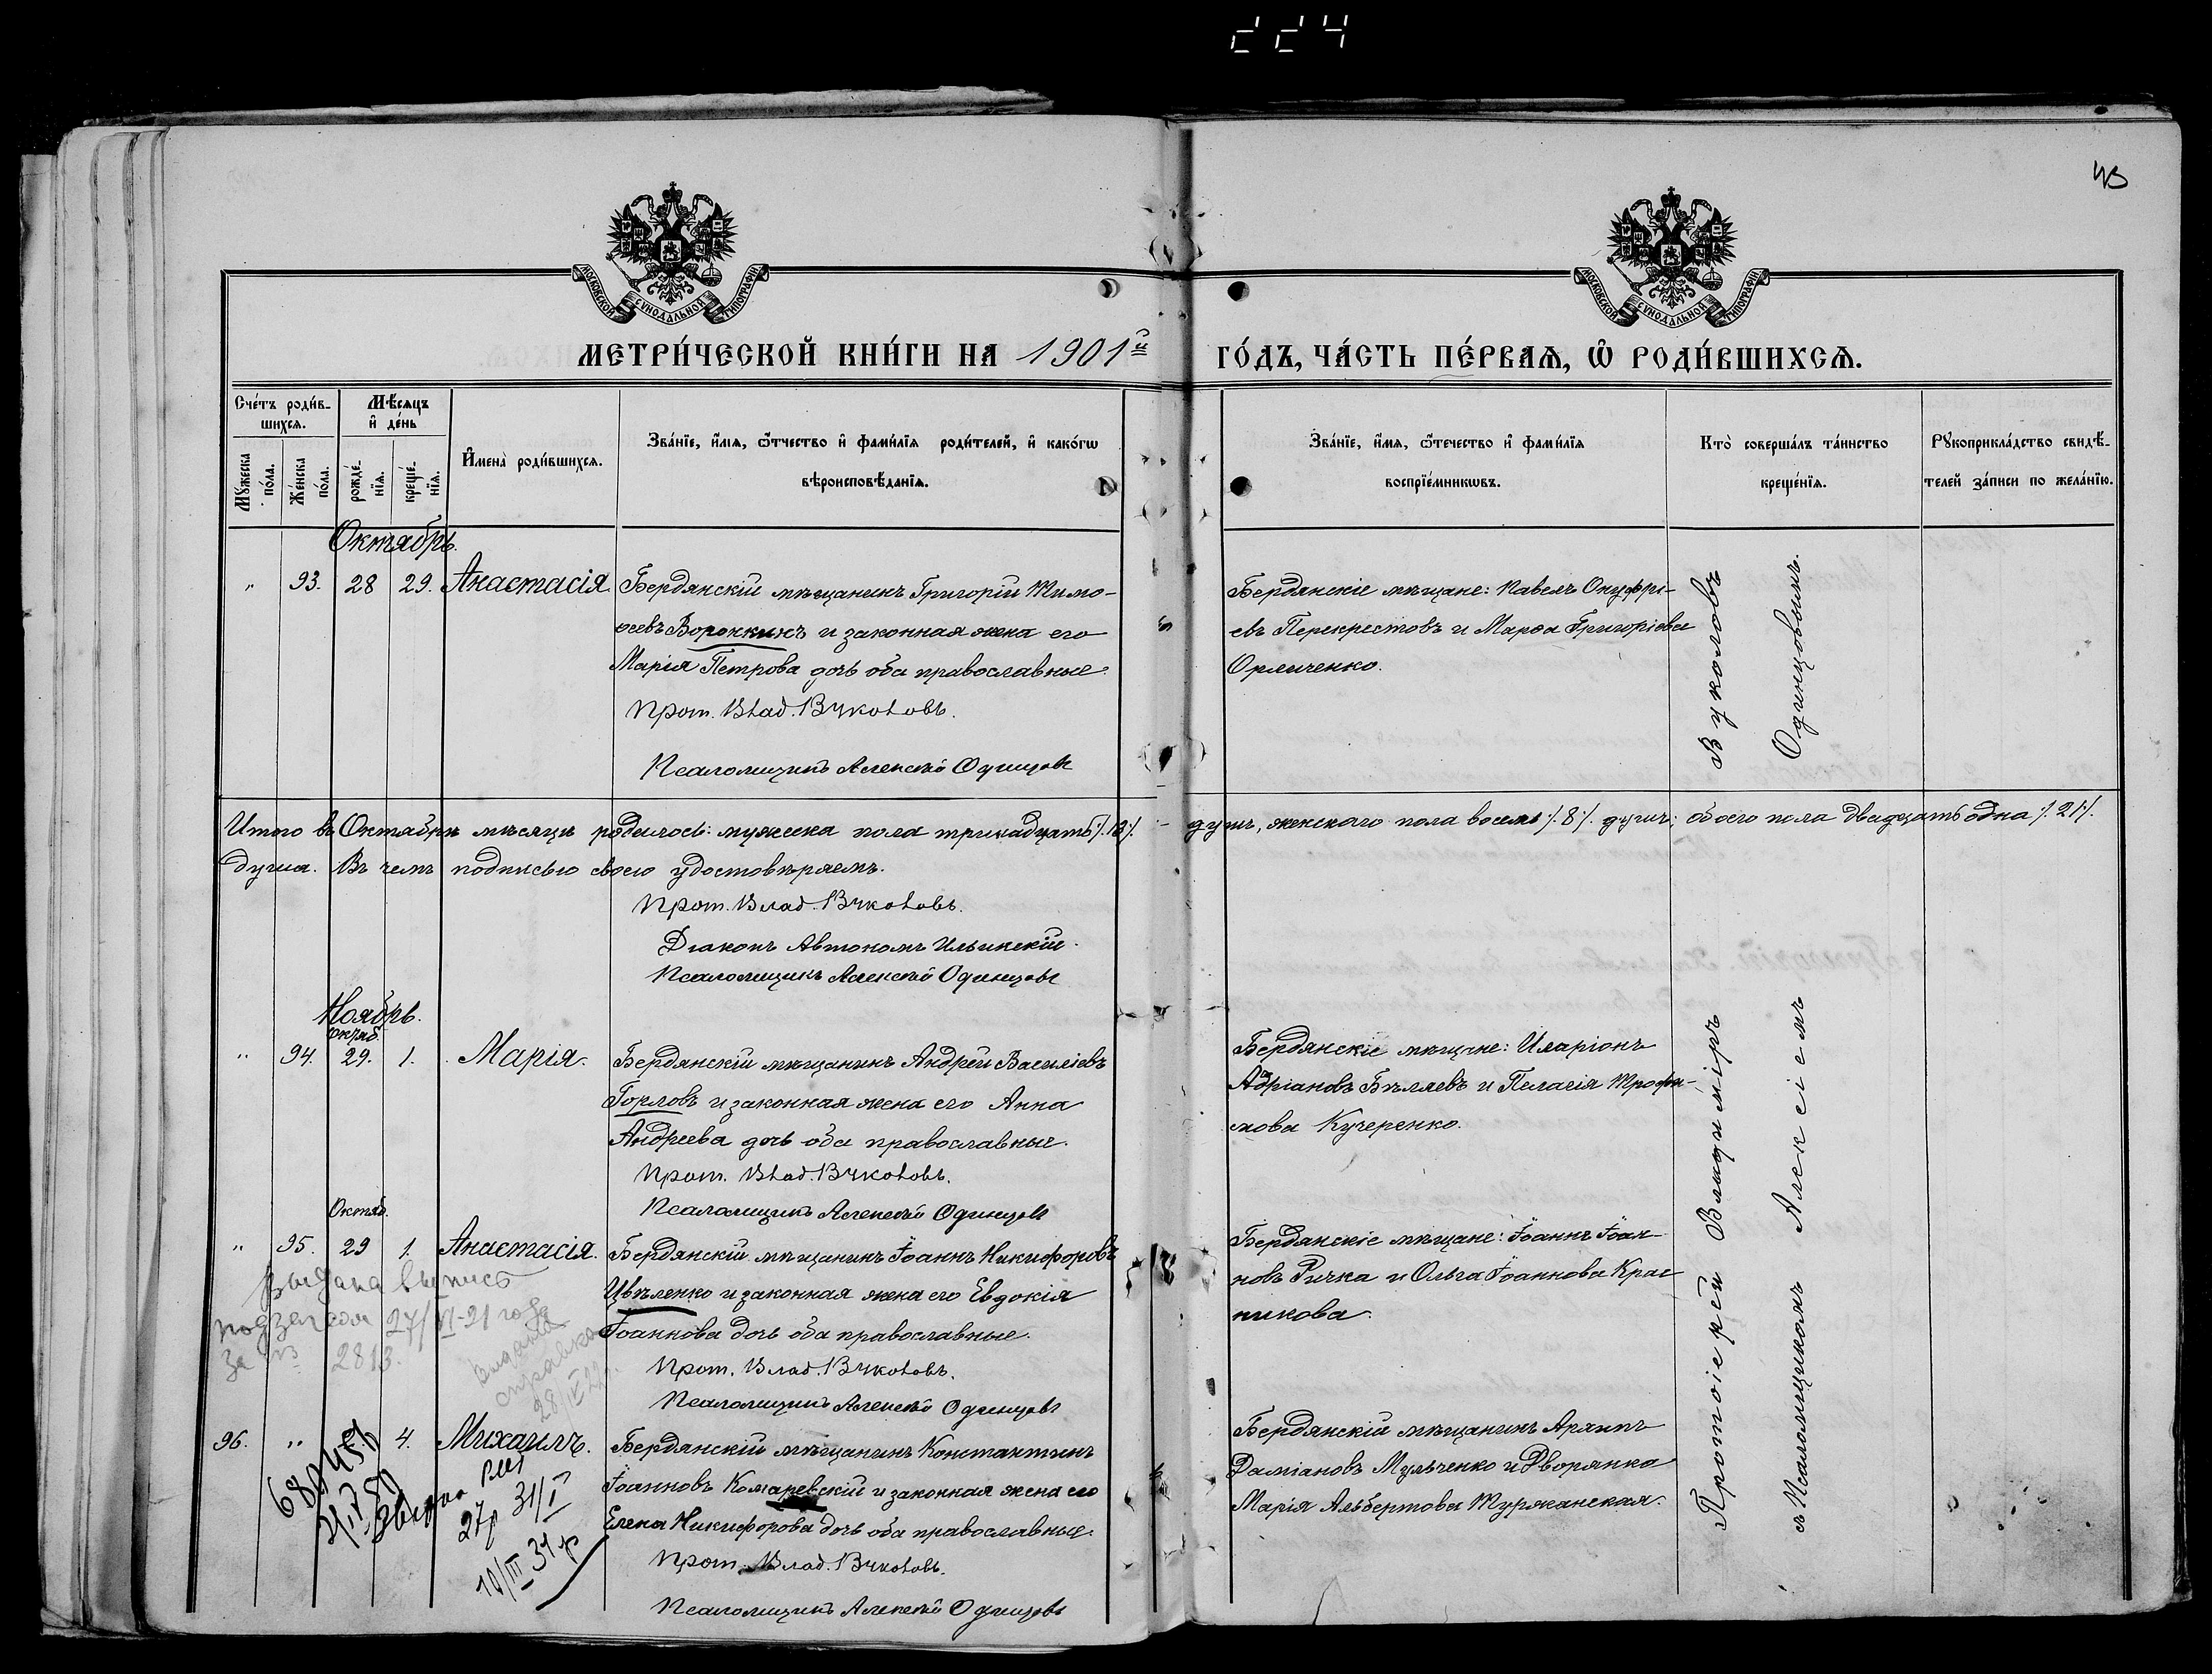 224
43
МОСКОВСКОЙ СѴНОДАЛЬНОЙ ТИПОГРАФІИ
МОСКОВСКОЙ СѴНОДАЛЬНОЙ ТИПОГРАФІИ
МЕТРИ́ЧЕСКОЙ КНИ́ГИ НА 1901й ГО́ДЪ, ЧА́СТЬ ПЕ́РВАѦ, Ѡ҆ РОДИ́ВШИХСѦ.
Сче́тъ роди́в-
шихсѧ.
Мѣ́сѧцъ
и҆ де́нь
Мꙋ́жеска
по́ла.
Же́нска
по́ла.
рожде́-
нїѧ.
креще́-
нїѧ.
И҆мена̀ роди́вшихсѧ.
Зва́нїе, и҆́мѧ, ѻ҆́тчество и҆ фами́лїѧ роди́телей, и҆ како́гѡ
вѣроисповѣ́данїѧ.
Зва́нїе, и҆́мѧ, ѻ҆те́чество и҆ фами́лїѧ
воспрїе́мникѡвъ.
Кто̀ соверша́лъ та́инство
креще́нїѧ.
Рꙋкоприкла́дство свидѣ́-
телей за́писи по жела́нїю.
Октябрь.
" 93. 28 29. Анастасія.
Бердянскій мѣщанинъ Григорій Тимо-
ѳеевъ Воронкинъ и законная жена его
Марія Петрова дочь оба православные.
Прот. Влад. Вуколовъ.
Псаломщикъ Алексѣй Одинцовъ
Бердянскіе мѣщане: Павелъ Онуфрі-
евъ Перекрестовъ и Марѳа Григоріева
Орличенко.
Вуколовъ
Одинцовымъ.
Итого въ Октябрѣ мѣсяцѣ родилось: мужеска пола тринадцать /.13/. душъ, женскаго пола восемь /.8/. душъ; обоего пола двадцать одна /.21/.
душа. Въ чемъ подписью своею удостовѣряемъ.
Прот. Влад. Вуколовъ.
Діаконъ Автономъ Ильинскій.
Псаломщикъ Алексѣй Одинцовъ
Ноябрь.
Октяб.
" 94. 29. 1. Марія.
Бердянскій мѣщанинъ Андрей Василіевъ
Горловъ и законная жена его Анна
Андреева дочь оба православные.
Прот. Влад. Вуколовъ.
Псаломщикъ Алексѣй Одинцовъ
Бердянскіе мѣщане: Иларіонъ
Адріановъ Бѣляевъ и Пелагія Трофи-
мова Кучеренко.
Октяб.
" 95. 29 1. Анастасія.
Бердянскій мѣщанинъ Іоаннъ Никифоровъ
Цвѣленко и законная жена его Евдокія
Іоаннова дочь оба православные.
Прот. Влад. Вуколовъ.
Псаломщикъ Алексѣй Одинцовъ
Бердянскіе мѣщане: Іоаннъ Іоан-
новъ Ричка и Ольга Іоаннова Крас
никова.
Выдана выпись
27/VI-21 года
за № 2813.
Выдана
справка
28/IV 22г.
96. " 4. Михаилъ.
Бердянскій мѣщанинъ Константинъ
Іоанновъ Комаревскій и законная жена его
Елена Никифорова дочь оба православные.
Прот. Влад. Вуколовъ.
Псаломщикъ Алексѣй Одинцовъ
Бердянскій мѣщанинъ Архипъ
Даміановъ Мульченко и Дворянка
Марія Альбертова Туржанская.
27р 31/I
10/III 31 р
Протоіерей Владиміръ
съ Псаломщикомъ Алексіемъ